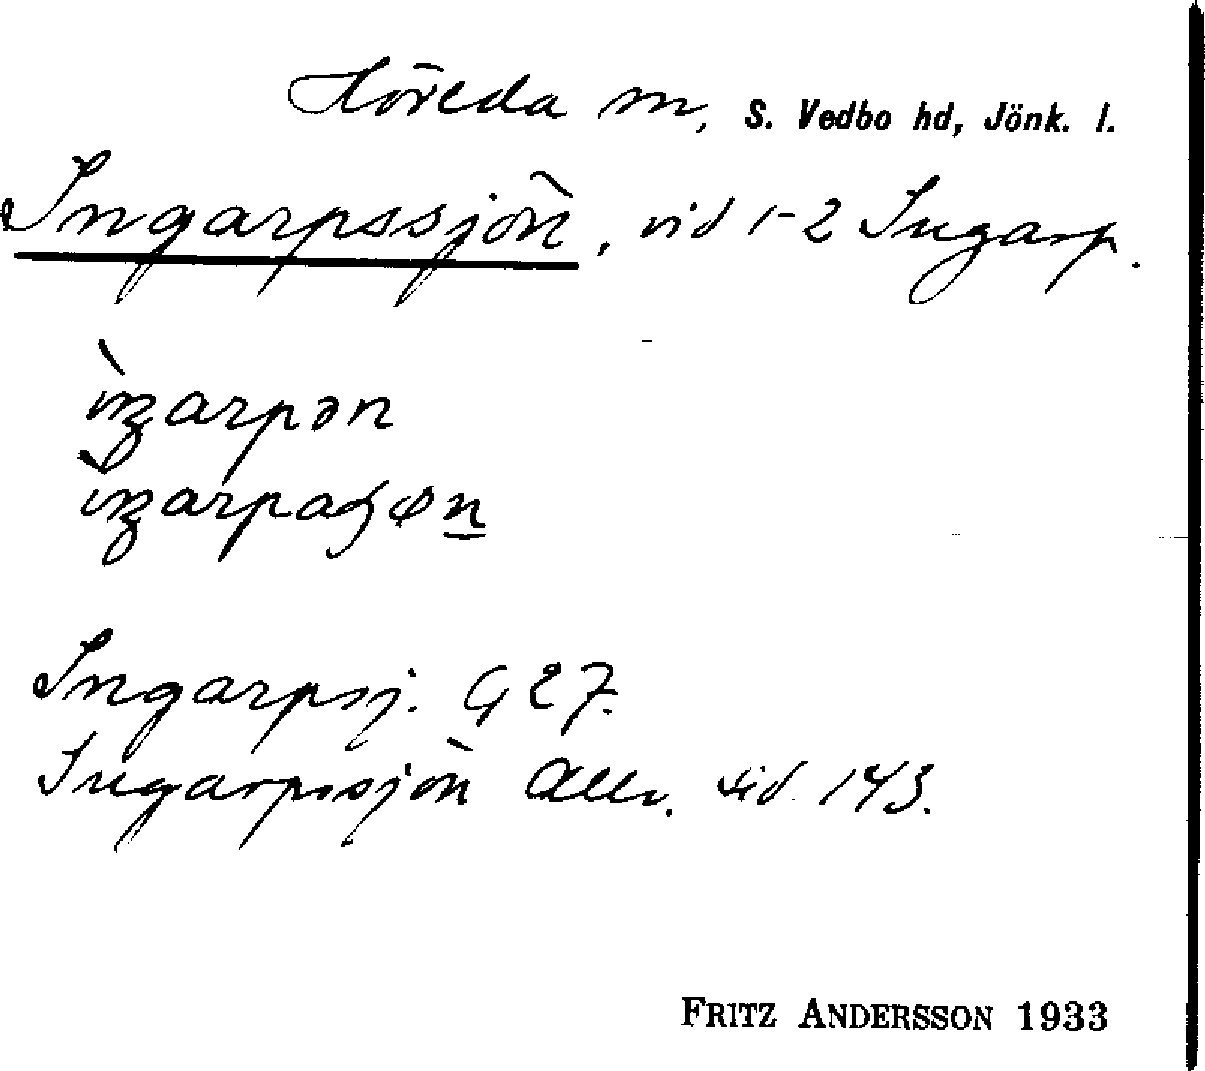 Höreda sn, S. Vedbo hd, Jönk. l.
Ingarpssjön, vid 1-2 Ingarp.
Ingarpsj. G 27.
Ingarpssjön Allv. sid. 143.
FRITZ ANDERSSON 1933